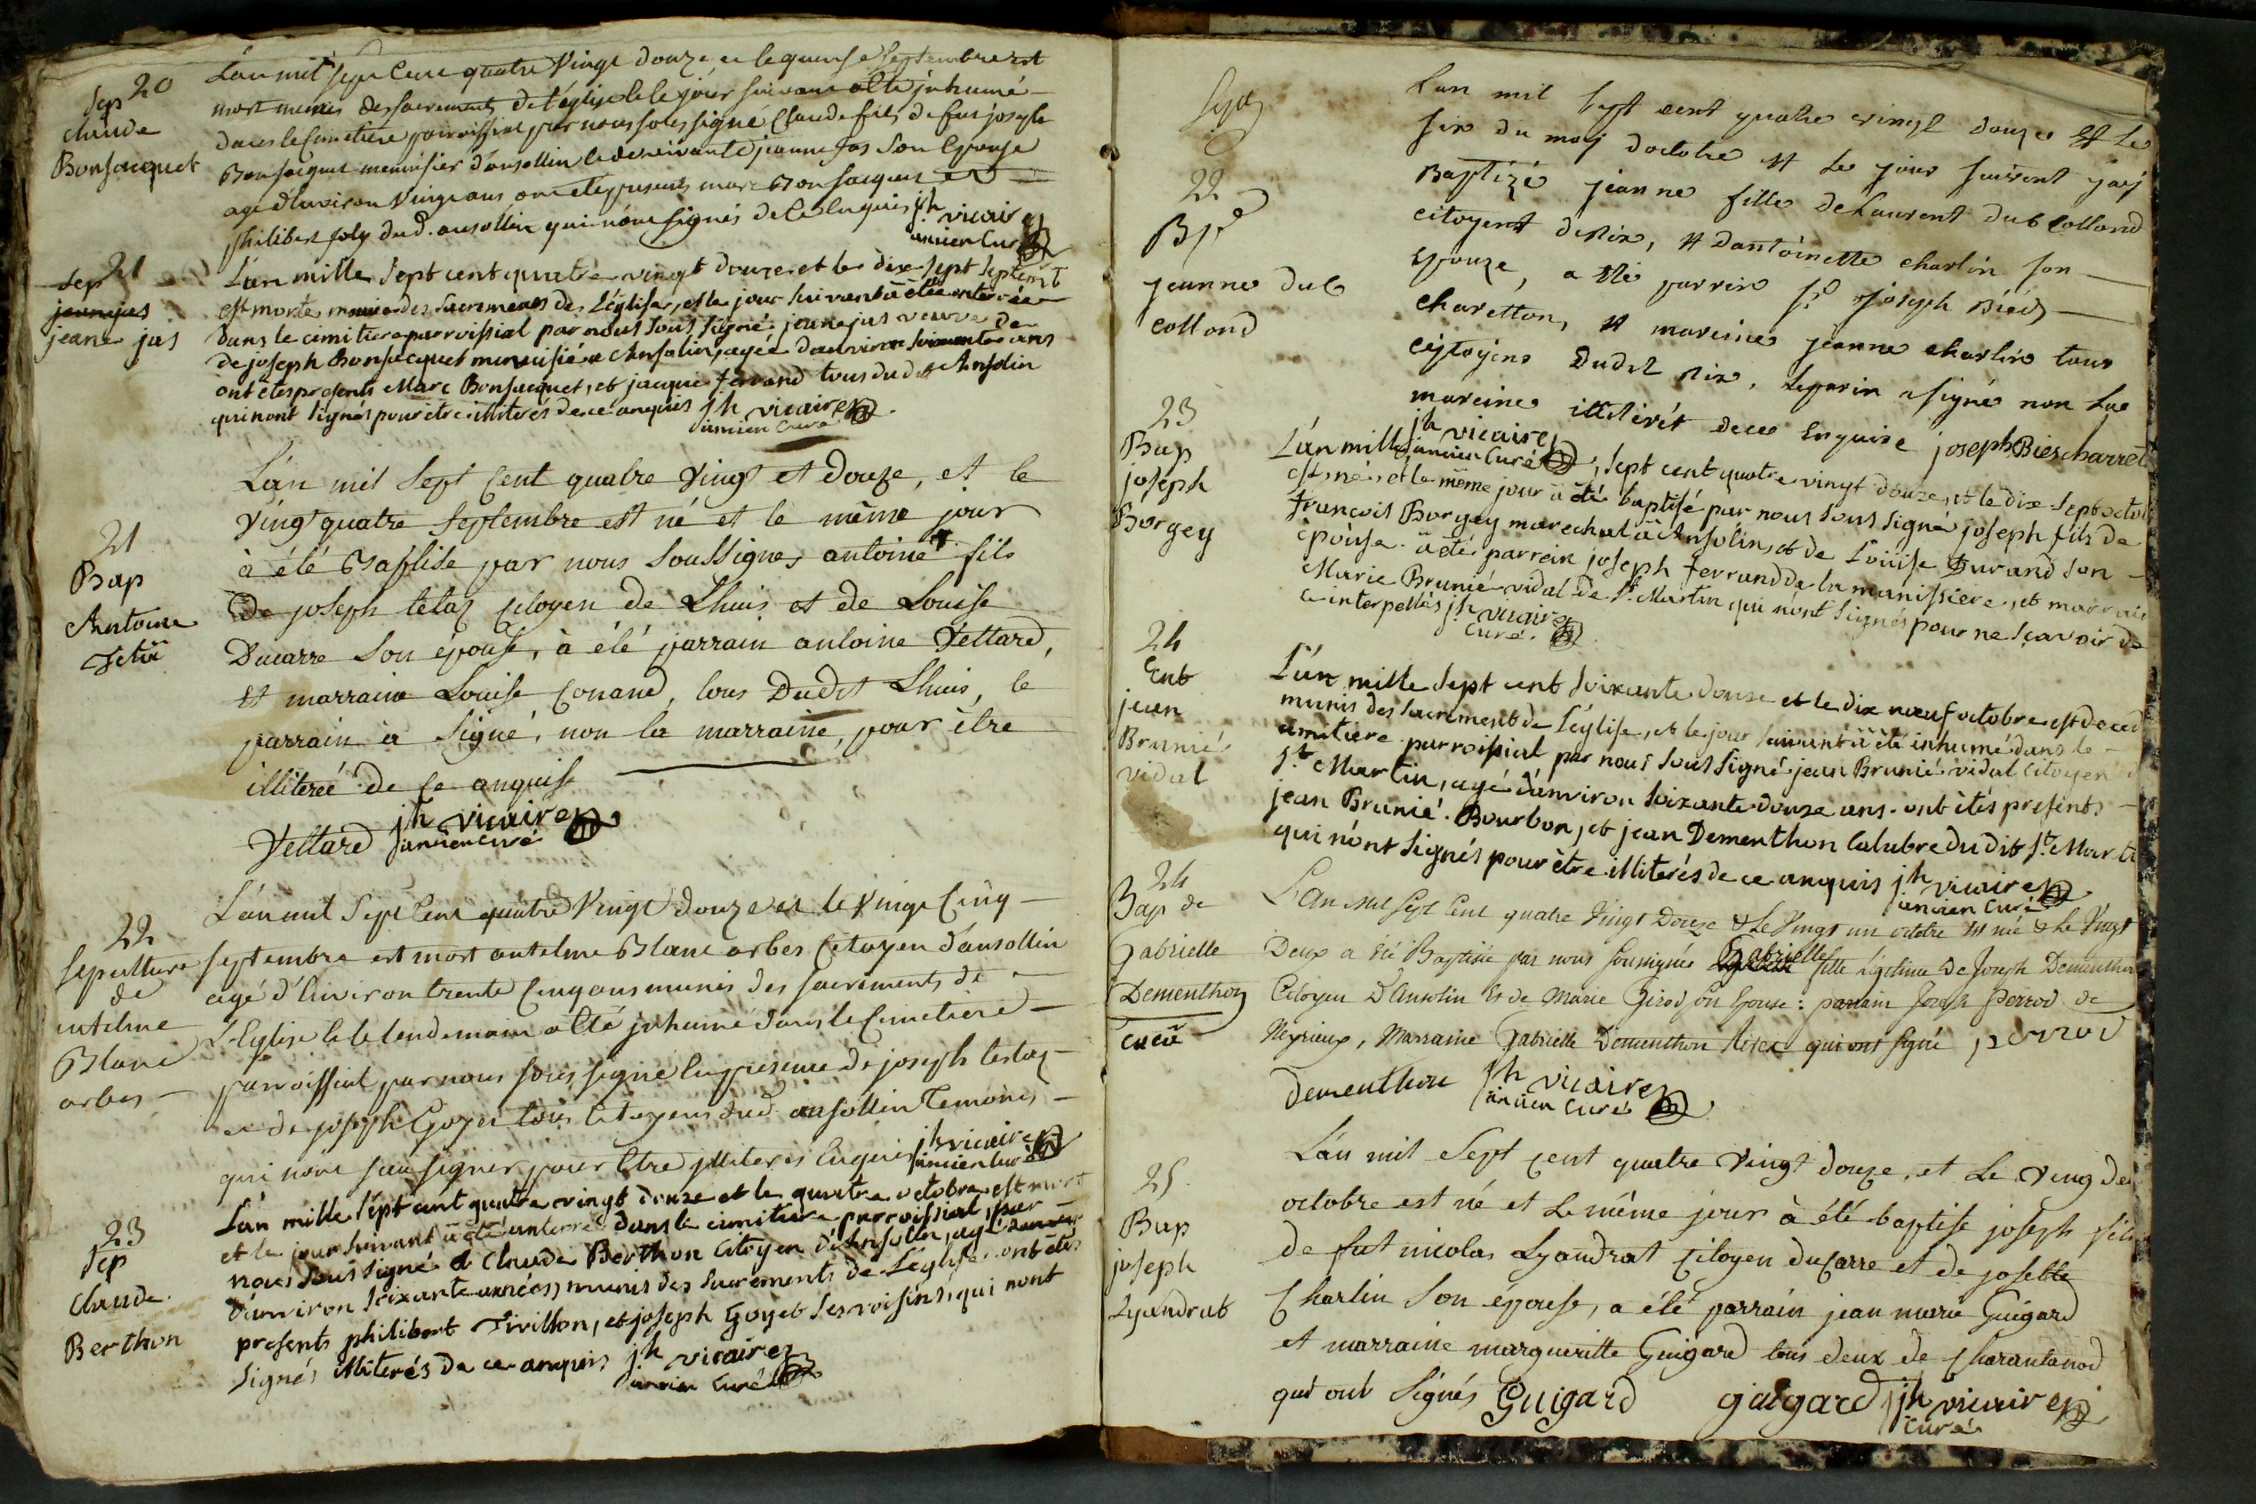 Sep 20
Claude
Bonjacquet
L'an mil sept cent quatre vingt douze et le quinse septembre est
mort munis des sacrements de l'église et le jour suivant a été inhumé
dans le cimetière parroissial par nous soussigné Claude fils de feu joseph
Bonjacquet menuisier d'ansollin et de vivante jeanne jas son epouse
agé d'environ vingt ans ont été presents marc Bonjacquet et
philibert joly dud. ansollin qui n'ont signés de ce enquis jh vicaire
ancien Curé
Sep 21
jeane jas
jeane jas
L'an mille sept cent quatre vingt douze et le dix sept septemb
est morte munie des sacrements de L'église, et le jour suivant à étée enterrée
dans le cimitiere parroissial par nous sous signé jeane jas veuve de
de joseph Bonjacquet menuisié a Ansolin, agée d'anviron soixante ans
ont étes presents Marc Bonjacquet, et jacque ferrand tous dudit Ansolin
qui nont signés pour être illiterés de ce anquis jh vicaire
ancien Curé
21
Bap
Antoine
Tetaz
L'an mil sept cent quatre vingt et douze, et le
vingt quatre septembre est né et le même jour
à été Baptisé par nous soussignes antoine fils
de joseph tetaz citoyen de Lhuis et de Louise
Ducarre son épouse, à été parrain antoine Vettard,
et marraine Louise Conand, tous Dudit Lhuis, le
parrain a signé, non la marraine, pour être
illiterée de ce anquise
Vettard jh vicaire
ancien Curé
22
sepulture
de
antelme
Blanc
arbes
L'an mil sept cent quatre vingt douze et le vingt cinq
septembre est mort antelme Blanc arbes Citoyen d'ansollin
agé d'environ trente cinq ans munis des sacrements de
L'Eglise et le lendemain a été inhumé dans le Cimetiere
parroissial par nous sous signé en presence de joseph testaz
et de joseph Goyet tous citoyens dud. ansollin Temoins
qui n'ont sçu signer pour etre illiteres enquis jh vicaire
ancien curé
23
Sep
Claude
Berthon
L'an mille sept cent quatre vingt douze et le quatre octobre est mort
et le jour suivant à été anterré dans le cimitiere parroissial, par
nous sous signé Claude Berthon Citoyen d'Ansollin, agé
d'anviron soixante années, munis des sacrements de L'église ont étes
presents philibert Tivillon, et joseph Goyet ses voisins, qui nont
signés illiterés de ce anquis jh vicaire
ancien Curé
22
Bp
jeanne dub
collond
Lan mil sept cent quatre vingt douze et le
six du mois doctobre et le jour suivent jaÿ
Baptizé jeanne fille de Laurent dub collond
citoyent de Rix, et dantoinette charlin son
epouze, a été parrin sr joseph Biéd
charetton, et mareine jeanne charlin tous
citoyens Dudit Rix, Leparin a signé non la
mareine illitérét de ce Enquize joseph Bies charret
jh vicaire
ancien Curé
23
Bap
joseph
Borgey
L'an mille, sept cent quatre vingt douze, et le dix sept octob
est né, et le même jour à été baptisé par nous sous signé joseph fils de
francois Borgey marechal à Ansolin, et de Louise Durand son
épouse. à été parrein joseph ferrand de la manissiere, et marraine
Marie Brunié vidal de St Martin qui nont signés pour ne sçavoir de
ce interpellés jh vicaire
Curé.
24
Ent
jean
Brunié
vidal
L'an mille sept cent soixante douze et le dix nœuf octobre est deced
munis des sacrement de L'église, et le jour suivant à été inhumé dans le
cimitiere parroissial par nous sous signé jean Brunié vidal Citoyen
St Martin, agé d'anviron soixante douze ans. ont étés presents
jean Brunié Bourbon, et jean Dementhon Calabre dudit St. Marti
qui n'ont signés pour être illiterés de ce anquis jh vicaire
ancien Curé
24
Bap de
Gabrielle
Dementhon
L'An mil sept Cent quatre Vingt Douze & Le Vingt un octobre est née & Le Vingt
Deux a été Baptisée par nous soussignée Gabrielle fille Légitime De Joseph Dementhon
Citoyen D'Ansolin Et de Marie Girod son Epouse: parrain Joseph Perrod de
Meyrieux, Marraine Gabrielle Dementhon qui ont signé perrod
dementhon jh vicaire
ancien Curé
25
Bap
joseph
Lyandrat
L'an mil sept cent quatre vingt douze, et Le ving deu
octobre est né et Le même jour à été baptisé joseph fils
de feut nicolas Lyandrat citoyen ducarre et de josette
Charlin son épouse, a été parrain jean marie Guigard
et marraine margueritte Guigard tous deux de Charantonod
qui ont signés Guigard guigard jh vicaire
Curé